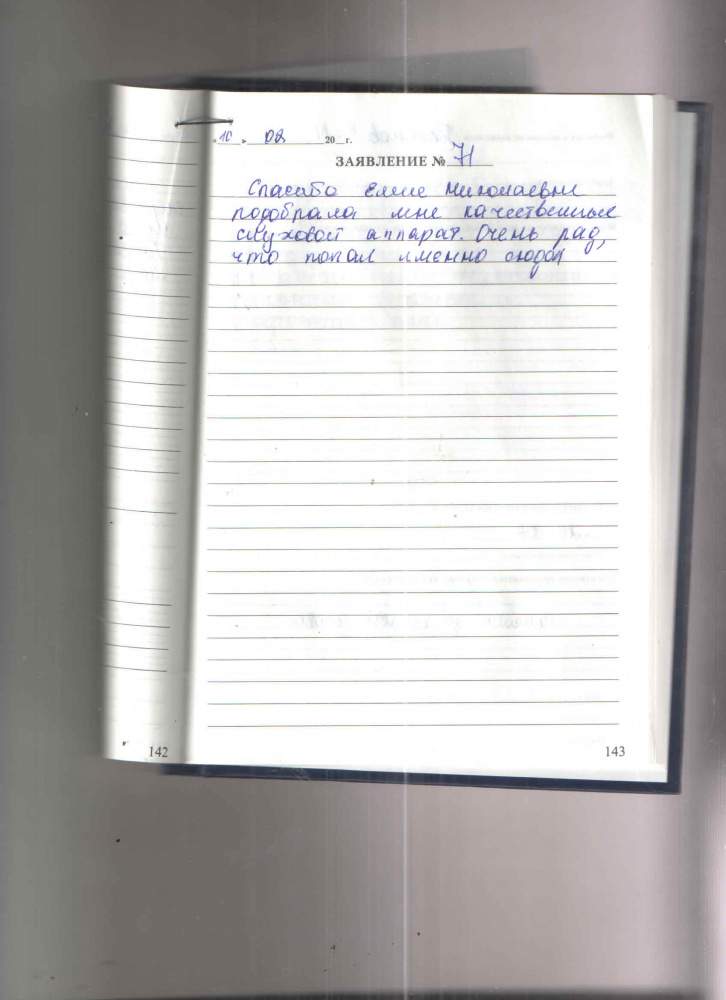 « 10 » 02 20 г.
ЗАЯВЛЕНИЕ № 71
Спасибо Елене Николаевне
подобрала мне качественные
слуховой аппарат. Очень рад,
что попал именно сюда
142
143